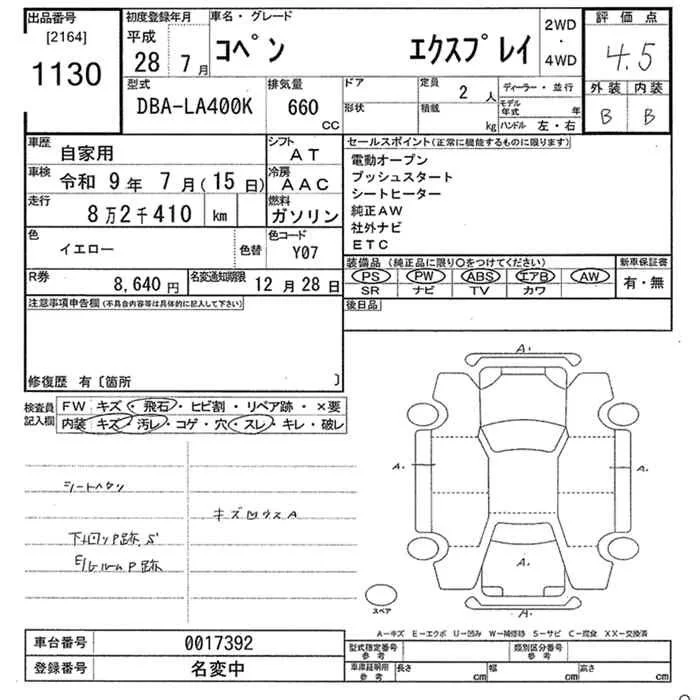 出品番号
[2164]
1130
初度登録年月
平成
28年 7月
車名・グレード
コペン エクスプレイ
2WD
・
4WD
評価点
4.5
外装 内装
B B
型式
DBA-LA400K
排気量
660
cc
ドア
形状
定員
2人
積載
kg
ディーラー・並行
モデル年式 年
ハンドル 左・右
車歴
自家用
車検
令和 9年 7月(15日)
走行
8万2千410 km
色
イエロー
色替
シフト
AT
冷房
AAC
燃料
ガソリン
色コード
Y07
R券
8,640円
名変通知期限
12月28日
セールスポイント(正常に機能するものに限ります)
電動オープン
プッシュスタート
シートヒーター
純正AW
社外ナビ
ETC
装備品(純正品に限り○をつけてください)
PS PW ABS エアB AW
SR ナビ TV カワ
新車保証書
有・無
後日品
注意事項申告欄(不具合内容等は具体的に記入して下さい)
修復歴 有〔箇所 〕
検査員
記入欄
FW キズ・飛石・ヒビ割・リペア跡・×要
内装 キズ・汚レ・コゲ・穴・スレ・キレ・破レ
シートヘタリ
キズ凹ウスA
下廻りP跡.S
E/Gルーム P跡
A.
A.
A.
A.
A.
スペア
A−キズ E−エクボ U−凹み W−補修跡 S−サビ C−腐食 XX−交換済
車台番号
0017392
登録番号
名変中
型式指定番号
参考
類別区分番号
参考
車庫証明用
参考
長さ cm
幅 cm
高さ cm